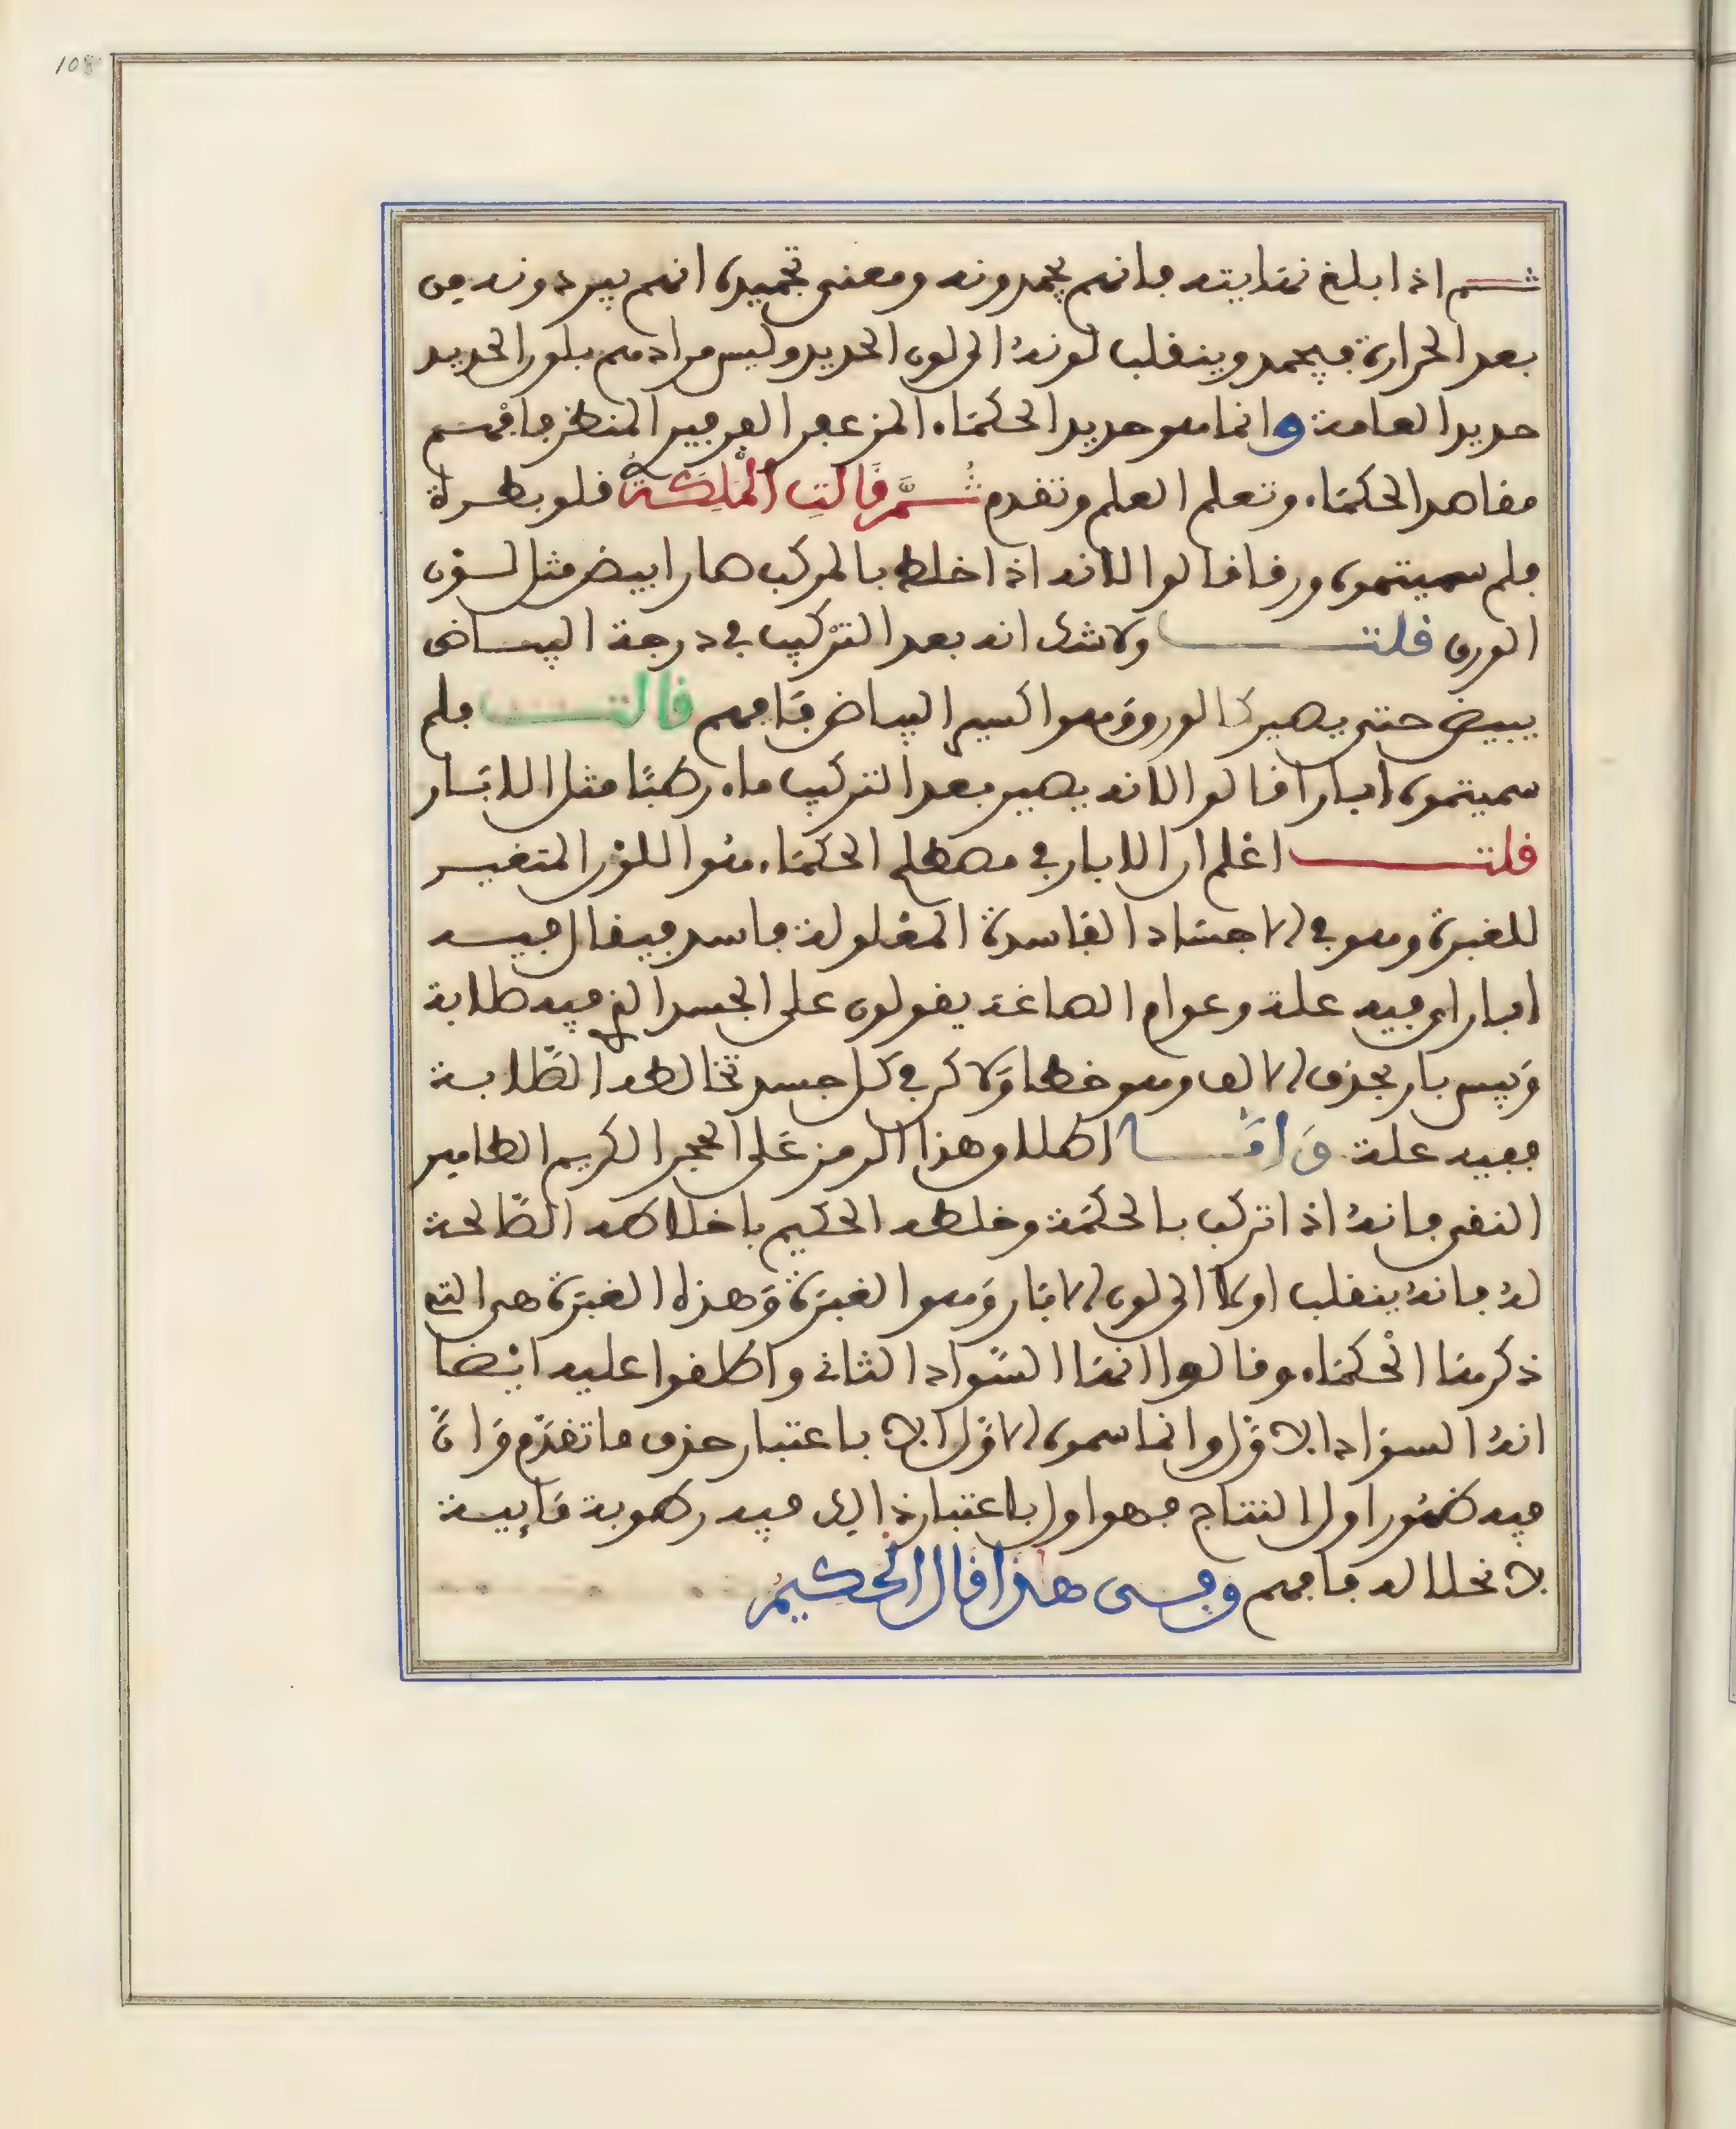 108
ثم اذا بلغ نهايته فانهم يجمدونه ومعنى تجميده انهم يبردونه من
بعد الحرارة فيجمد وينقلب لونه الى لون الحديد وليس مرادهم بلون الحديد
حديد العامة وانما هو حديد الحكماء المزعفر الفرفير المنظر فافهم
مقاصد الحكماء وتعلم العلم وتقدم ثم قالت الملكة قلوبطرة
فلم سميتموه ورقا قالوا لانه اذا خلط بالمركب صار ابيض مثل لون
الورق قلت ولا شك انه بعد التركيب في درجة البياض
يبيض حتى يصير كالورق وهو اكسير البياض فافهم قالت فلم
سميتموه ابارا قالوا لانه يصير بعد التركيب ماء رطبا مثل الابار
قلت اعلم ان الابار في مصطلح الحكماء هو اللون المتغير
للغبرة وهو في الاجساد الفاسدة المعلولة فاسد فيقال فيه
ابار اي فيه علة وعوام الصاغة يقولون على الجسد الذي فيه صلابة
ويبس بار بحذف الالف وهو خطا ولاكن في كل جسد تخالطه الصلابة
ففيه علة واما اطلاق هذا الرمز على الحجر الكريم الطاهر
النقي فانه اذا تركب بالحكمة وخلطه الحكيم باخلاطه الصالحة
له فانه ينقلب اولا الى لون الابار وهو الغبرة وهذه الغبرة هي التي
ذكرها الحكماء وقالوا انها السواد الثاني واطلقوا عليه ايضا
انه السواد الاول وانما سموه الاول لا باعتبار حذف ما تقدم وان
فيه ظهور اول النتاج فهو اول باعتبار ذالك فيه رطوبة قابلة
لانحلاله فافهم وفي هذا قال الحكيم